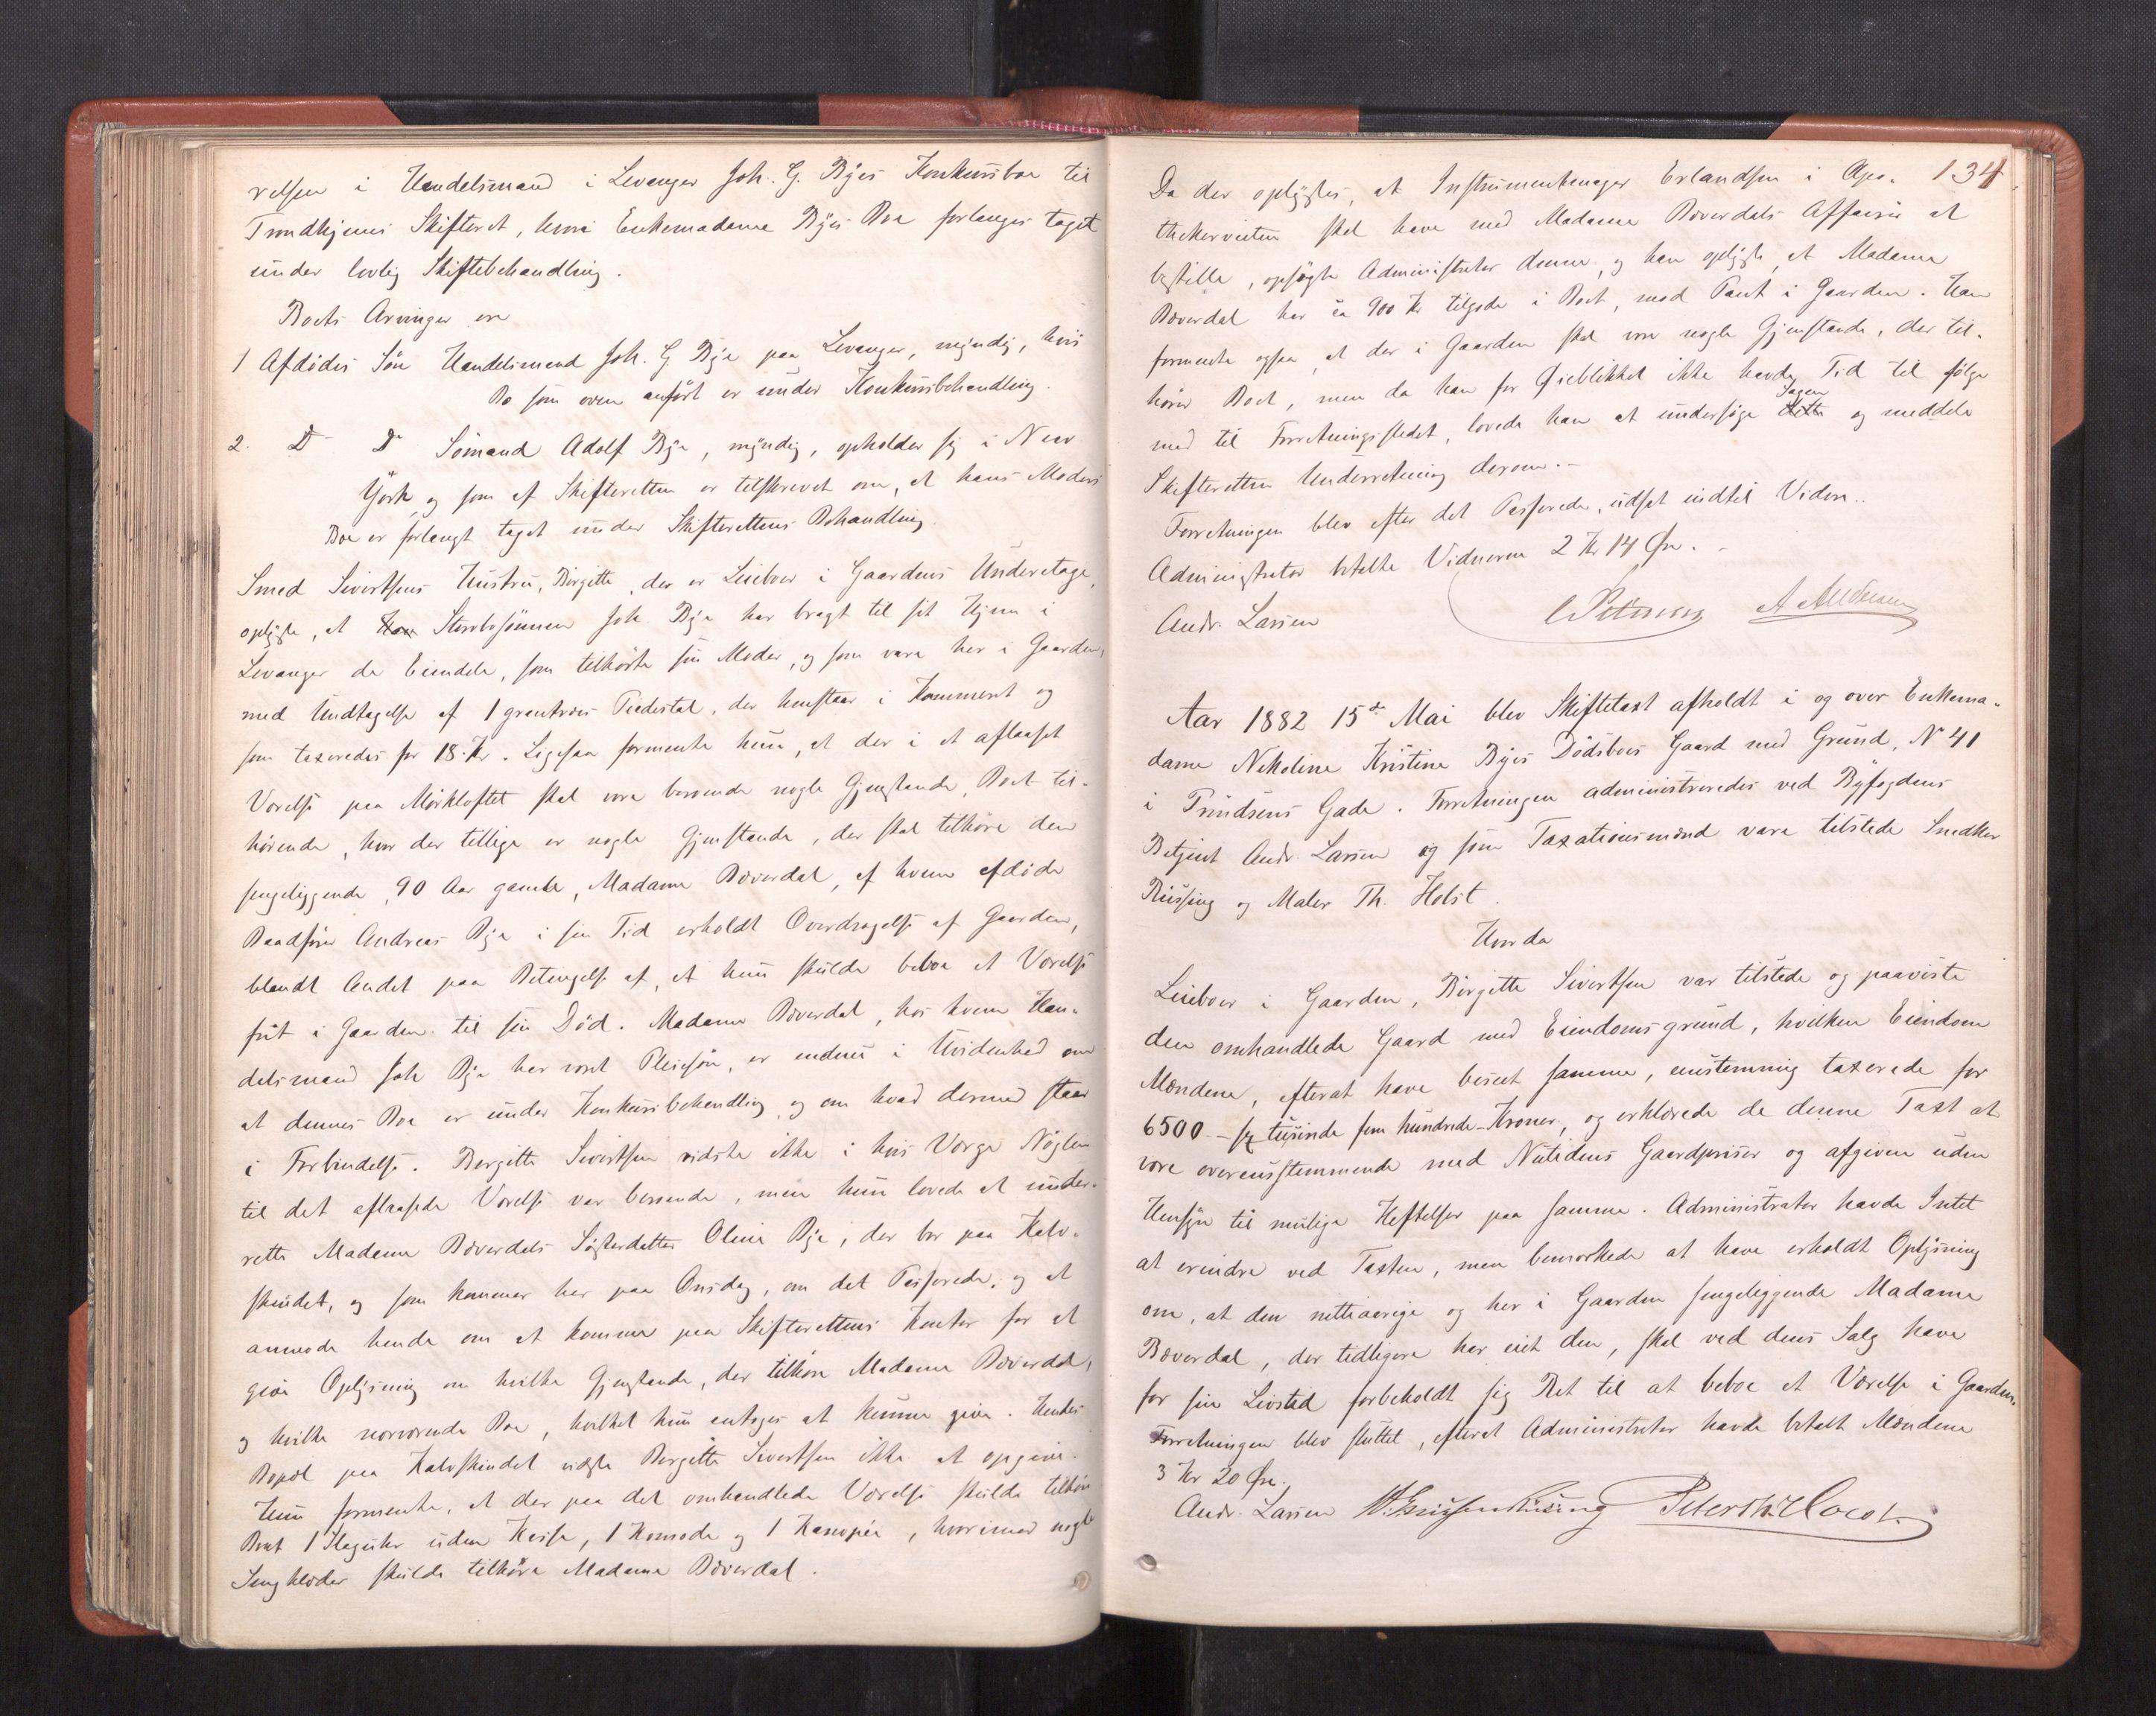 relsen i Handelsmand i Levanger Joh. G. Byes Konkursboe til
Trondhjems Skifteret, hvori Enkemadame Byes Boe forlanges taget
under lovlig Skiftebehandling.
Boets Arvinger ere
1 Afdødes Søn Handelsmand Joh. G Bye paa Levanger, myndig, hvis
Bo som oven anført er under Konkursbehandling.
2. D D Sömand Adolf Bye, myndig, opholder sig i New
York, og som af Skifteretten er tilskrevet om, at hans Moders
Boe er forlangt taget under Skifterettens Behandling.
Smed Sivertsens Hustru, Birgitte, der er Leieboer i Gaardens Underetage,
oplyste, at Stervbosønnen Joh. Bye har bragt til sit Hjem i
Levanger de Eiendele, som tilhørte sin Moder, og som vare her i Gaarden,
med Undtagelse af 1 grantræes Piedestal, der henstaar i Kammeret og
som taxeredes for 18 Kr. Ligesaa formente hun, at der i et aflaaset
Værelse paa Mørkloftet skal være beroende nogle Gjenstande, Boet til-
hørende, hvor der tillige er nogle Gjenstande, der skal tilhøre den
sengeliggende, 90 Aar gamle, Madame Bøverdal, af hvem afdøde
Andreas Bye i sin Tid erholdt Overdragelse af Gaarden,
blandt Andet paa Betingelse af, at hun skulde beboe et Værelse
frit i Gaarden til sin Død. Madame Bøverdal, hos hvem Han-
delsmand Joh Bye har været Pleiesøn, er endnu i Uvidenhed om
at dennes Boe er under Konkursbehandling, og om hvad dermed staar
i Forbindelse. Birgitte Sivertsen vidste ikke i hvis Værge Nøglen
til det aflaasede Værelse var beroende, men hun lovede at under-
rette Madame Bøverdals Søsterdatter Oline Bye, der bor paa Kalv-
skindet, og som kommer her paa Onsdag, om det Passerede, og at
anmode hende om at komme paa Skifterettens Kontor for at
give Oplysning om hvilke Gjenstande, der tilhøre Madame Bøverdal,
og hvilke nærværende Boe, hvilket hun antages at kunne give. Hendes
Bopæl paa Kalvskindet vidste Birgitte Sivertsen ikke at opgive.
Hun formente, at der paa det omhandlede Værelse skulde tilhøre
Boet 1 Slaguhr uden Kasse, 1 Komode og 1 Kanapee, hvorimod nogle
Sengklæder skulde tilhøre Madame Bøverdal.
134
Da der oplystes, at Instrumentmager Erlandsen i Apo-
thekerveiten skal have med Madame Bøverdals Affairer at
bestille, opsøgte Administrator denne, og han oplyste, at Madame
Bøverdal har ca 900 Kr tilgode i Boet, mod Pant i Gaarden. Han
formente ogsaa, at der i Gaarden skal være nogle Gjenstande, der til-
hører Boet, men da han for Øieblikket ikke havde Tid til følge
med til Forretningsstedet, lovede han at undersøge dette Sagen og meddele
Skifteretten Underretning derom.-
Forretningen blev efter det Passerede, udsat indtil Videre..
Administrator betalte Vidnerne 2 Kr 14 Øre.
Andr. Larsen
Aar 1882 15de Mai blev Skiftetaxt afholdt i og over Enkema-
dame Nikoline Kristine Byes Dødsboes Gaard med Grund, No 41
i Prindsens Gade. Forretningen administreredes ved Byfogdens
Betjent Andr. Larsen og som Taxationsmænd vare tilstede Snedker
Rüssing og Maler Th. Holst.
Hvorda
Leieboer i Gaarden, Birgitte Sivertsen var tilstede og paaviste
den omhandlede Gaard med Eiendomsgrund, hvilken Eiendom
Mændene, efterat have beseet samme, eenstemmig taxerede for
6500 - sex tusinde fem hundrede - Kroner, og erklærede de denne Taxt at
være overensstemmende med Nutidens Gaardpriser og afgiven uden
Hensyn til mulige Heftelser paa samme. Administrator havde Intet
at erindre ved Taxten, men bemærkede at have erholdt Oplysning
om, at den nittiaarige og her i Gaarden sengeliggende Madame
Bøverdal, der tidligere har eiet den, skal ved dens Salg have
for sin Livstid forbeholdt sig Ret til at beboe et Værelse i Gaarden.
Forretningen blev sluttet, efterat Administrator havde betalt Mændene
3 Kr 20 Øre.
Andr. Larsen